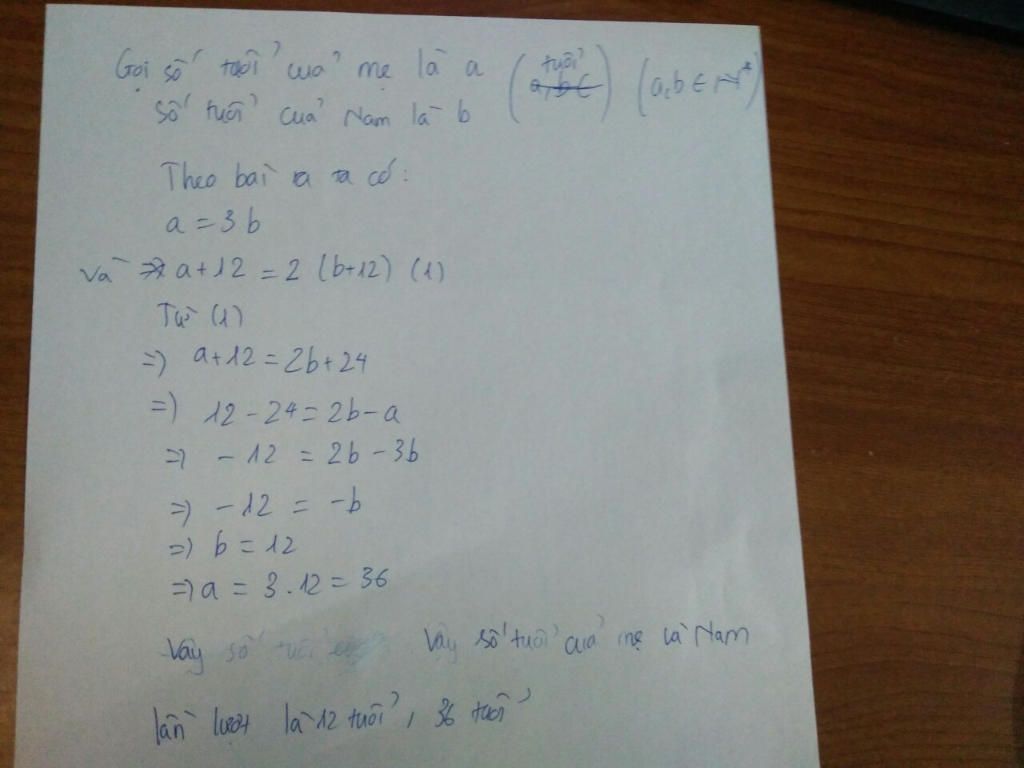 Gọi số tuổi của mẹ là a (tuổi) (a,b ∈ N*)
số tuổi của Nam là b
Theo bài ra ta có:
a = 3b
Và a+12 = 2 (b+12) (1)
Từ (1)
=) a+12 = 2b+24
=) 12-24 = 2b-a
=) -12 = 2b-3b
=) -12 = -b
=) b = 12
=) a = 3.12 = 36
Vậy số tuổi Vậy số tuổi của mẹ và Nam
lần lượt là 12 tuổi, 36 tuổi